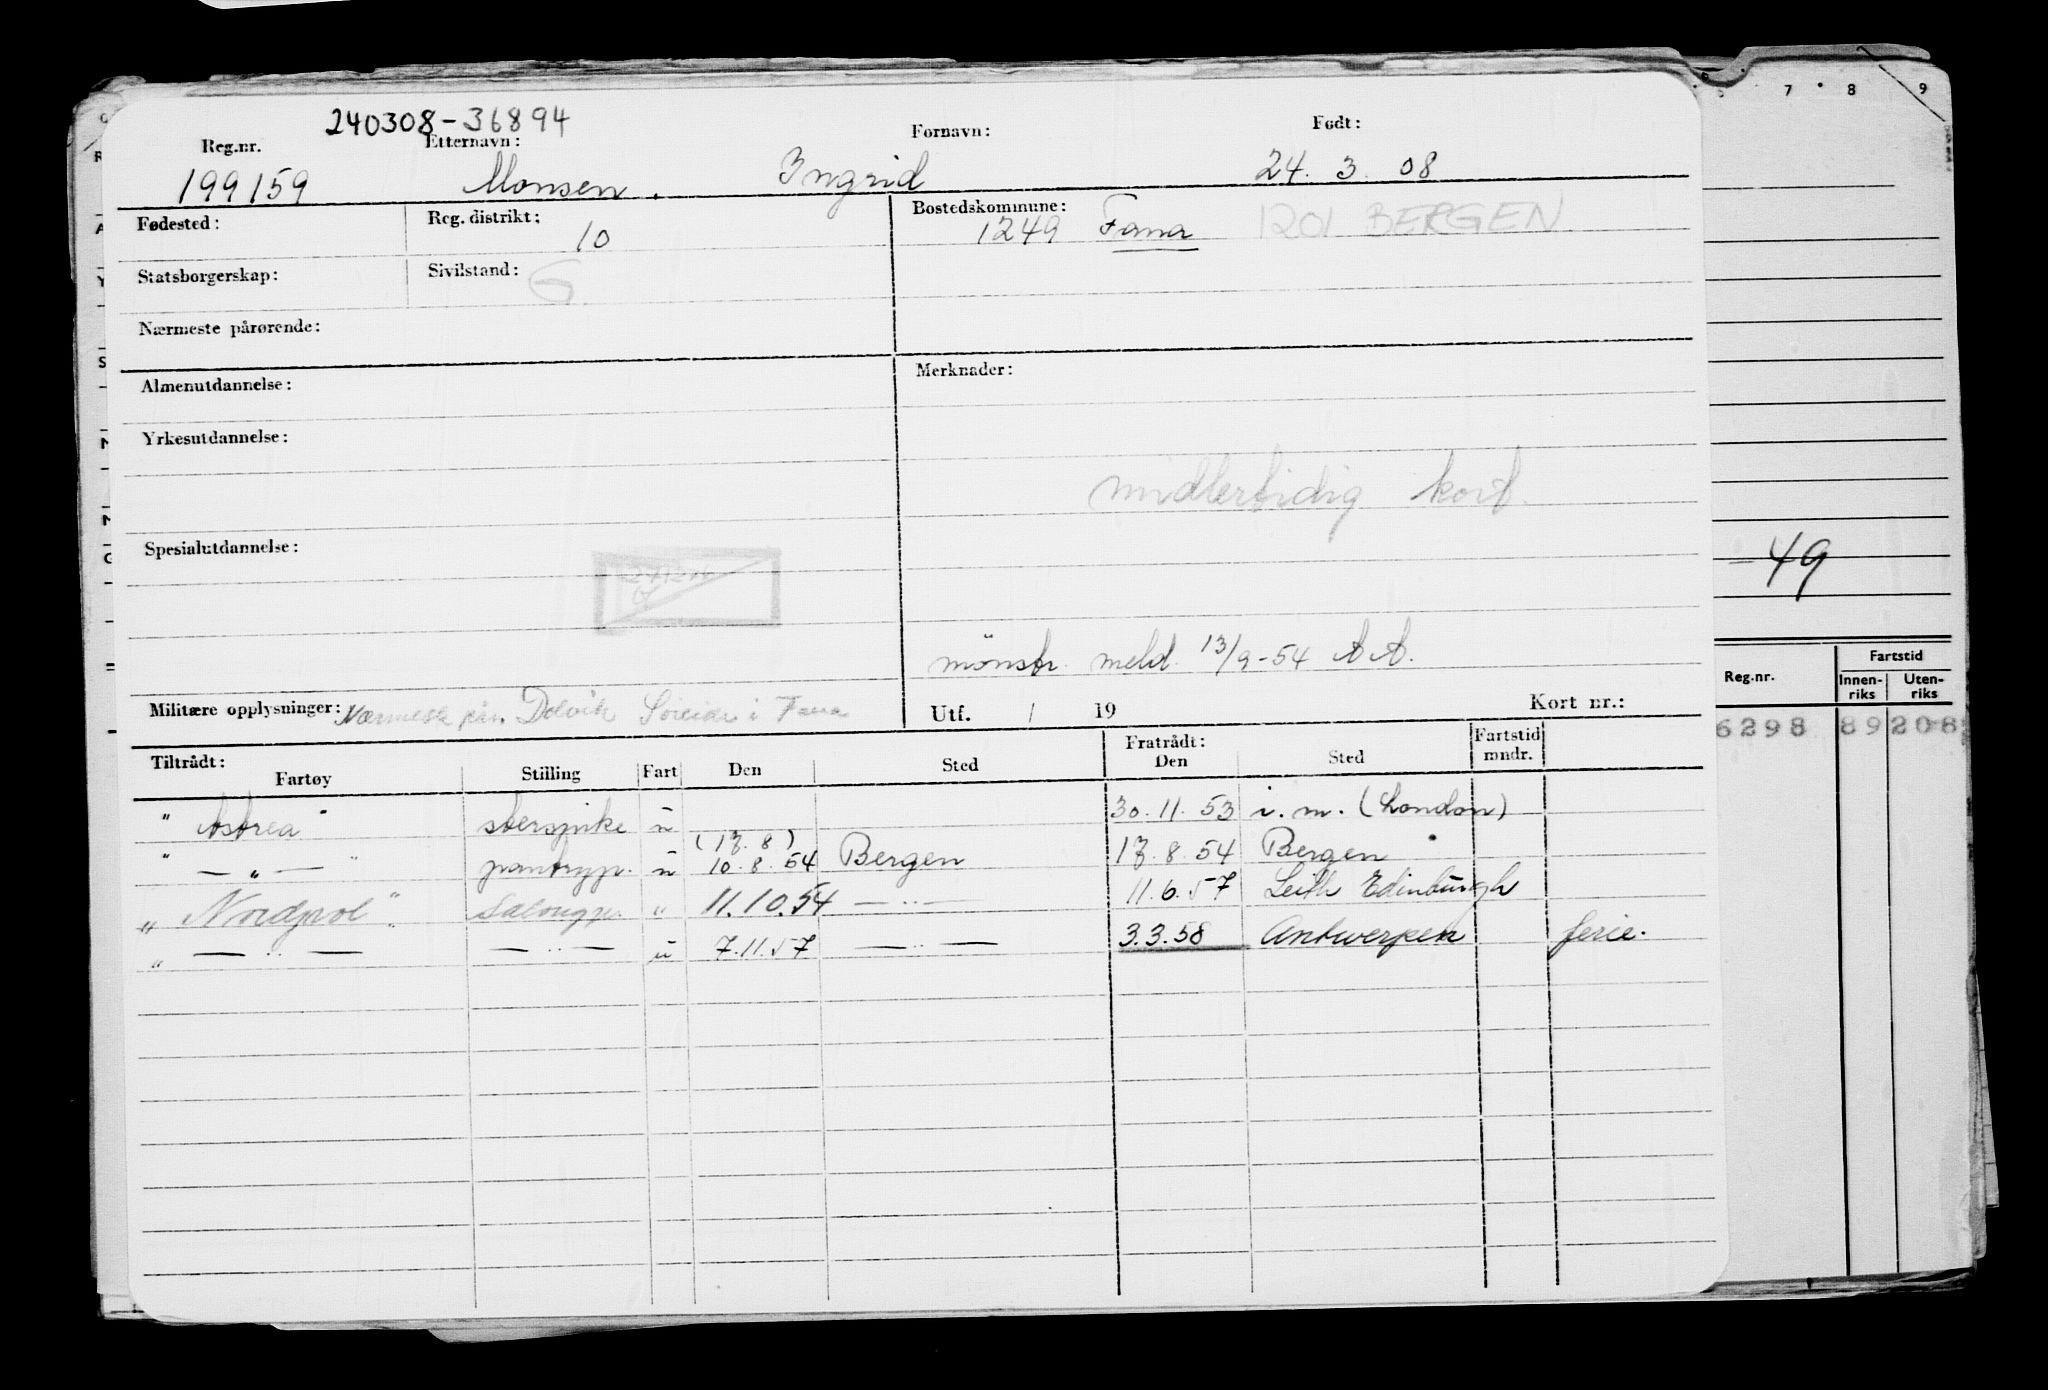 240308-36894
Reg.nr. Etternavn: Fornavn: Født:
199159 Monsen. Ingrid 24. 3. 08
Fødested: Reg. distrikt: 10 Bostedskommune: 1249 Fana 1201 BERGEN
Statsborgerskap: Sivilstand: G
Nærmeste pårørende:
Almenutdannelse: Merknader:
Yrkesutdannelse:
midlertidig kort.
Spesialutdannelse:
mönstr. meld. 13/9-54 AA.
Militære opplysninger: Nærmeste pår. Dolvik Søreide i Fana Utf. / 19 Kort nr.:
Tiltrådt: Fratrådt: Fartstid
Fartøy Stilling Fart Den Sted Den Sted mndr.
" Astrea " u 30. 11. 53 i. m. (London)
(17. 8)
" — " — " pantryp. u 10. 8. 54 Bergen 17. 8. 54 Bergen
" Nordpol " Salongp. " 11.10.54 — " — 11.6.57 Leith Edinburgh
" — " — — " — u 7.11.57 — " — 3.3.58 Antwerpen ferie.
7 8 9
-49
Reg.nr. Fartstid
Innen-riks Uten-riks
6298 89 208